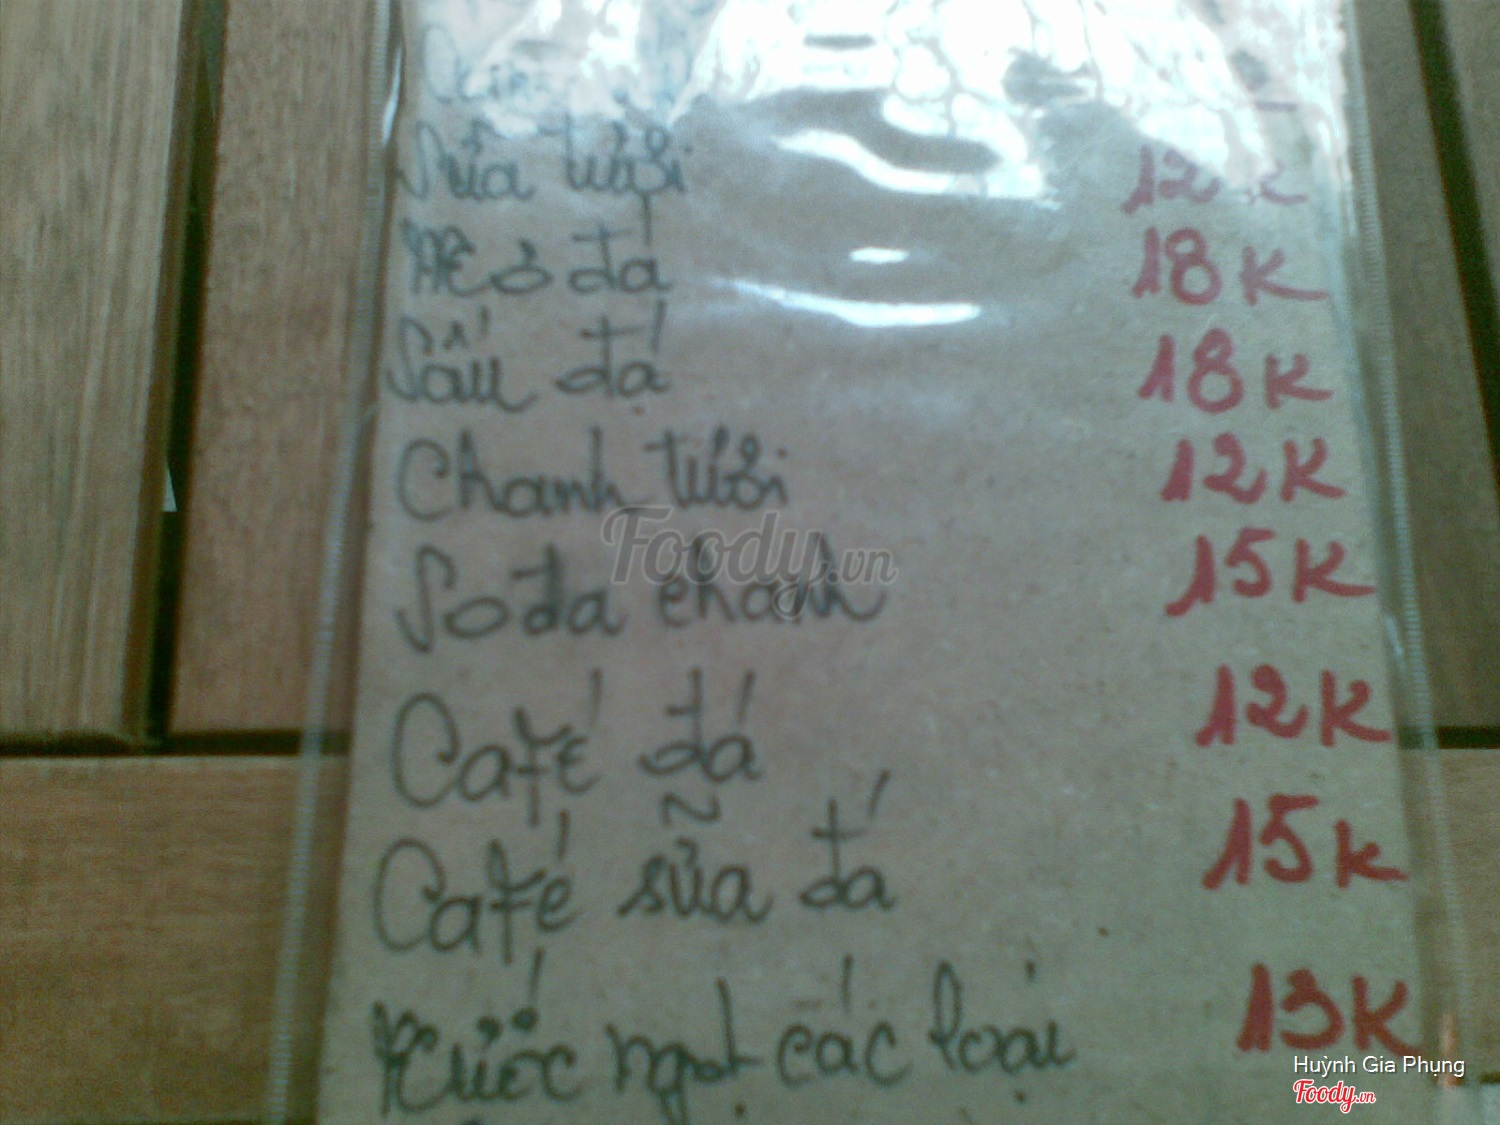 Sữa tươi 12K
Me đá 18K
Sấu đá 18K
Chanh tươi 12K
Sođa chanh 15K
Café đá 12K
Café sữa đá 15K
Nước ngọt các loại 13K
Foody.vn
Huỳnh Gia Phụng
Foody.vn